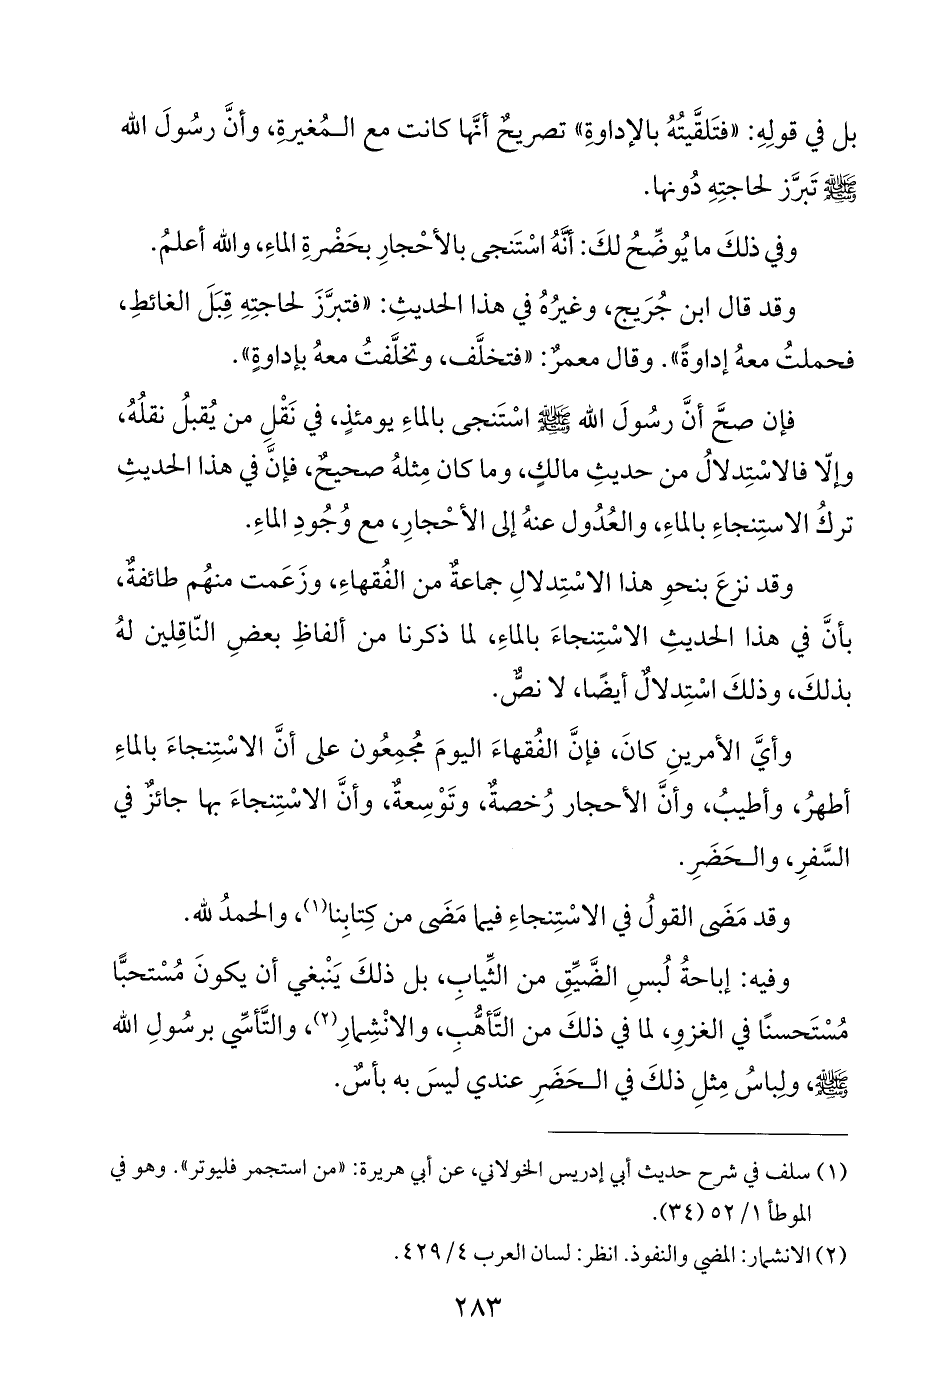 بل في قولِهِ: «فتَلقَّيتُهُ بالإداوةِ» تصريحٌ أنَّها كانت مع الـمُغيرةِ، وأنَّ رسُولَ الله
ﷺ تَبرَّز لحاجتِهِ دُونها.
وفي ذلكَ ما يُوضِّحُ لكَ: أنَّهُ اسْتَنجى بالأحْجارِ بحَضْرةِ الماءِ، والله أعلمُ.
وقد قال ابن جُرَيج، وغيرُهُ في هذا الحديثِ: «فتبرَّزَ لحاجتِهِ قِبَلَ الغائطِ،
فحملتُ معهُ إداوةً». وقال معمرٌ: «فتخلَّف، وتخلَّفتُ معهُ بإداوةٍ».
فإن صحَّ أنَّ رسُولَ الله ﷺ اسْتَنجى بالماءِ يومئذٍ، في نَقْلِ من يُقبلُ نقلُهُ،
وإلّا فالاسْتِدلالُ من حديثِ مالكٍ، وما كان مِثلهُ صحيحٌ، فإنَّ في هذا الحديثِ
تركُ الاستِنجاءِ بالماءِ، والعُدُول عنهُ إلى الأحْجارِ، مع وُجُودِ الماءِ.
وقد نزعَ بنحوِ هذا الاسْتِدلالِ جماعةٌ من الفُقهاءِ، وزَعَمت منهُم طائفةٌ،
بأنَّ في هذا الحديثِ الاسْتِنجاءَ بالماءِ، لما ذكرنا من ألفاظِ بعضِ النّاقِلين لهُ
بذلكَ، وذلكَ اسْتِدلالٌ أيضًا، لا نصٌّ.
وأيَّ الأمرينِ كانَ، فإنَّ الفُقهاءَ اليومَ مُجمِعُون على أنَّ الاسْتِنجاءَ بالماءِ
أطهرُ، وأطيبُ، وأنَّ الأحجار رُخصةٌ، وتَوْسِعةٌ، وأنَّ الاسْتِنجاءَ بها جائزٌ في
السَّفرِ، والـحَضَرِ.
وقد مَضَى القولُ في الاسْتِنجاءِ فيما مَضَى من كِتابِنا(١)، والحمدُ لله.
وفيه: إباحةُ لُبسِ الضَّيِّقِ من الثِّيابِ، بل ذلكَ يَنْبغي أن يكونَ مُسْتحبًّا
مُسْتَحسنًا في الغزوِ، لما في ذلكَ من التَّأهُّبِ، والانْشِمارِ(٢)، والتَّأسِّي برسُولِ الله
ﷺ، ولِباسُ مِثلِ ذلكَ في الـحَضَرِ عندي ليسَ به بأسٌ.
(١) سلف في شرح حديث أبي إدريس الخولاني، عن أبي هريرة: «من استجمر فليوتر». وهو في
الموطأ ١/ ٥٢ (٣٤).
(٢) الانشمار: المضي والنفوذ. انظر: لسان العرب ٤/ ٤٢٩.
٢٨٣